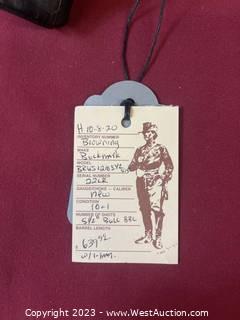 H 10-8-20
INVENTORY NUMBER
Browning
MAKE
Buckmark
MODEL
SERIAL NUMBER
22LR
GAUGE/CHOKE - CALIBER
New
CONDITION
10+1
NUMBER OF SHOTS
5½" Bull BBL
BARREL LENGTH
$639.92
w/1-MAG.
Copyright © 2023 - www.WestAuction.com